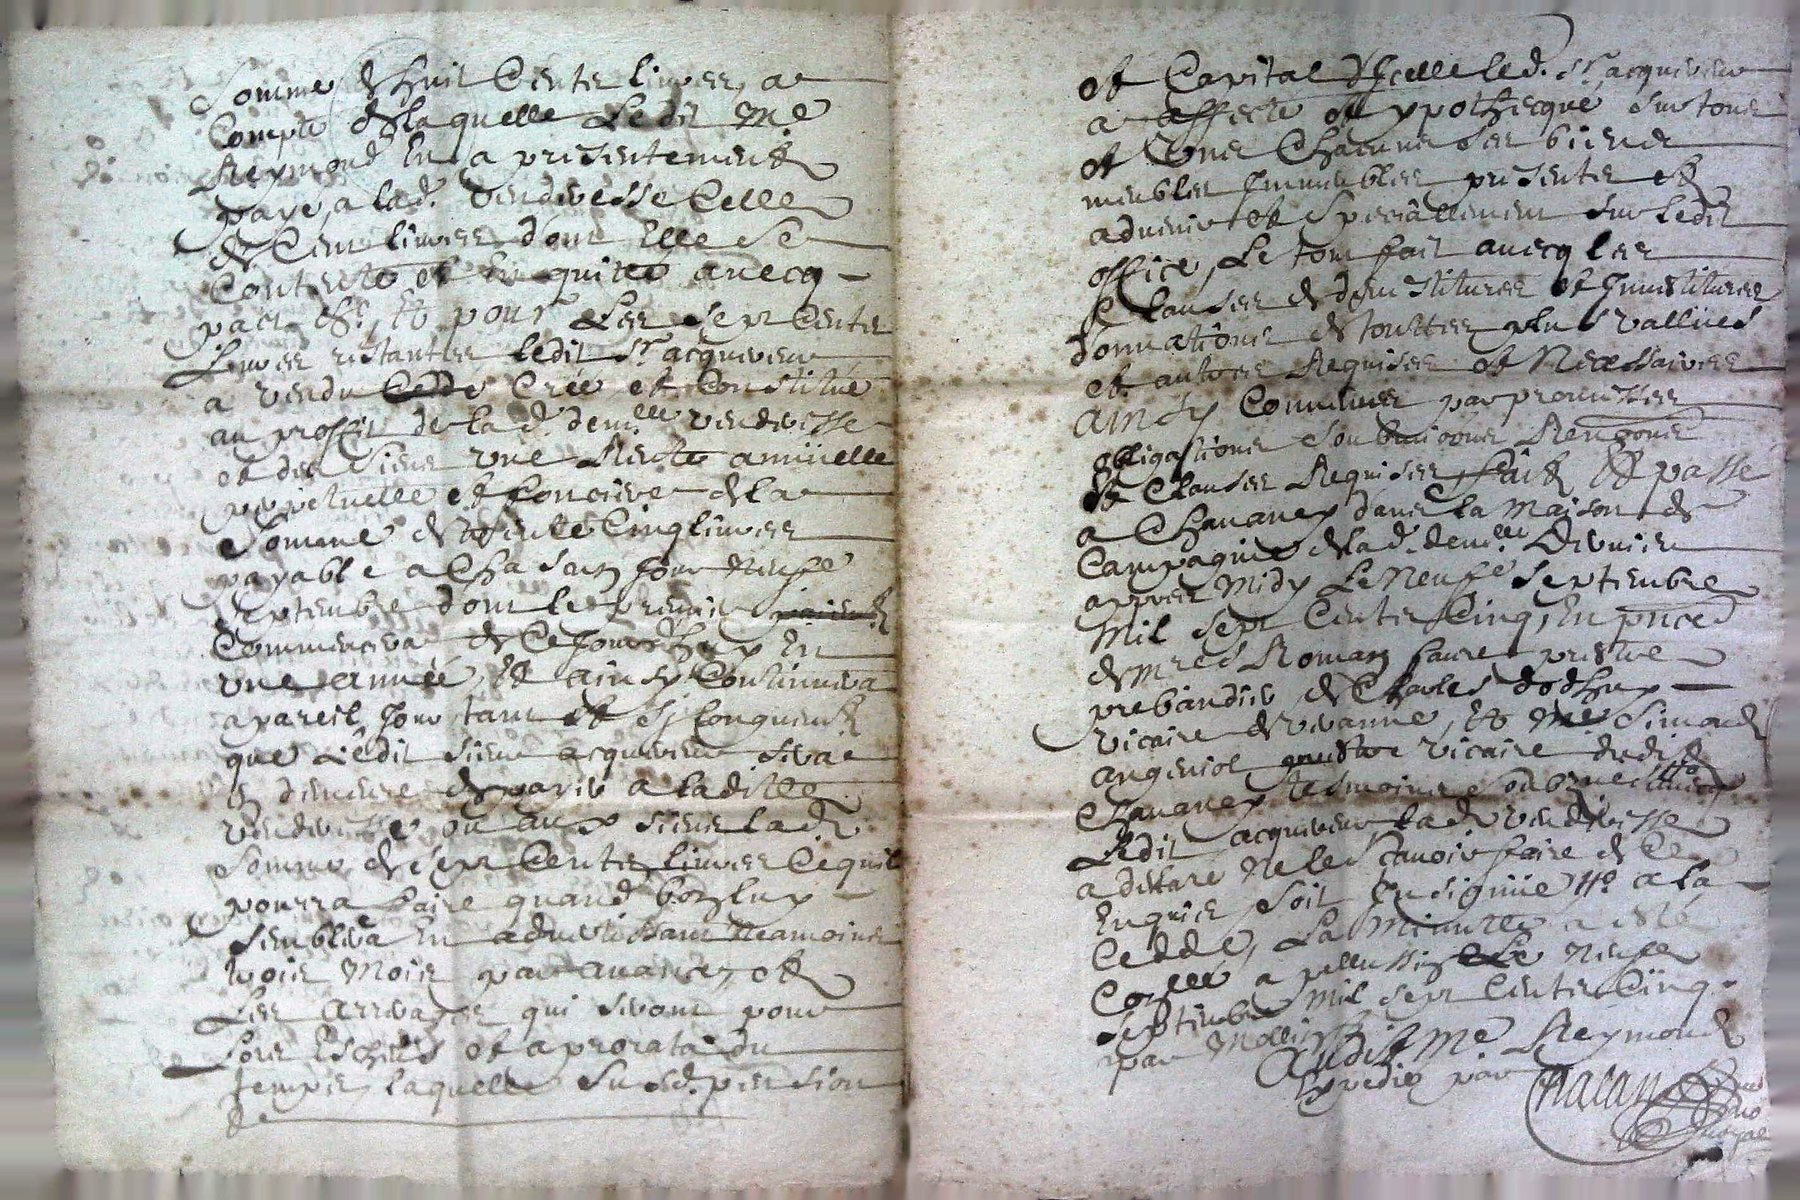 Somme de huit Cents livres, a
Compte de laquelle Ledit Me
Reymond En a presentement
paye, a lad. venderesse Celle
de Cent livres dont Elle Se
Contente et En quitte avecq
pact &c. Et pour Les Sept Cents
Livres restantes ledit Sr acquereur
a vendu Cedé Créé et Constitué
au proffit de lad. demlle venderesse
et des Siens une Rente annüelle
perpetuelle et fonciere de la
Somme de trente Cinq livres
payable a Chascun Jour Neufe
Septembre dont le premier
Commencera de Ce Jourdhuy En
une année, Et ainsy Continuera
a pareil Jour tant et Si longuement
que Ledit Sieur acquereur Sera
En demeure de payer a laditte
venderesse ou aux Siens lad.
Somme de Sept Cents livres Ce quil
pourra faire quand bon luy
Semblera En advertissant Neamoins
trois Mois par avance, et
Les arrerages qui Seront pour
Lors Escheus et a prorata du
temps, laquelle Susd. pension
de
et Capital d'Jcelle led. Sr acquereur
a affecté et ypothecqué Sur tous
et Uns Chacuns Ses biens
meubles Jmmeubles presents et
advenir et Speciallement Sur ledit
office, Le tout fait avecq les
Clauses de devestitures et Jnvestitures
donnations de touttes plus vallues
et autres Requises et Necessaires
ainsy Convenues par promesses
obligations Soubmissions Renons
et Clauses Requises fait Et passé
a Chavanay dans la Maison de
Campagne de lad. demlle Dernier
apprès Midy Le Neufe Septembre
Mil Sept Cents Cinq, En pnce
de mres Roman faure prestre
prebandier de Charles dodhuy
vicaire de vivanne, Et Me Simond
angeniol vicaire dudit
Chavanay tesmoins Soubsignés avecq
Ledit acquereur lad. venderesse
a declaré Ne le Scavoir faire de Ce
Enquise, Soit Jnsignüé Mo a la
Cedde, La Minutte a esté
Conllee a pellussin Le Neufe
Septembre Mil Sept Cents Cinq
par
audit Me Reymond
Expedié par